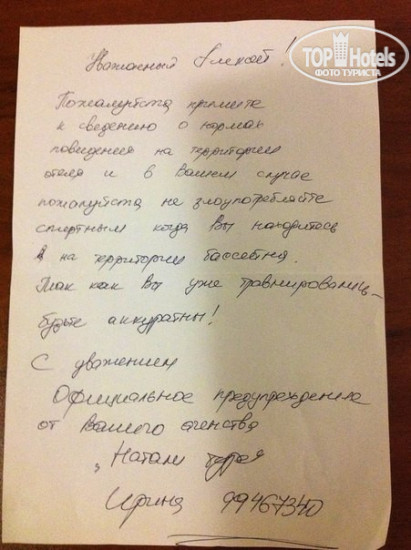 TOP Hotels
ФОТО ТУРИСТА
Уважаемый Алексей!
Пожалуйста примите
к сведению о нормах
поведения на территории
отеля и в Вашем случае
пожалуйста не злоупотребляйте
спиртным когда Вы находитесь
на территории бассейна.
Так как Вы уже травмировались
будьте аккуратны!
С уважением
Официальное предупреждение
от Вашего агенства
"Натали турс"
Ирина 99467340